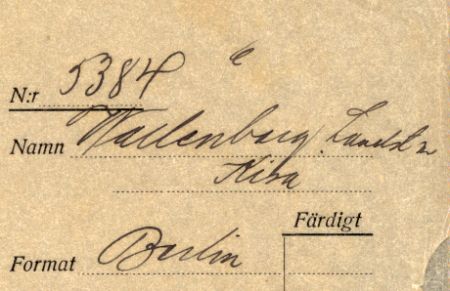 N:r 5384
Namn Wallenborg, Landst
Kisa
Färdigt
Format Berlin